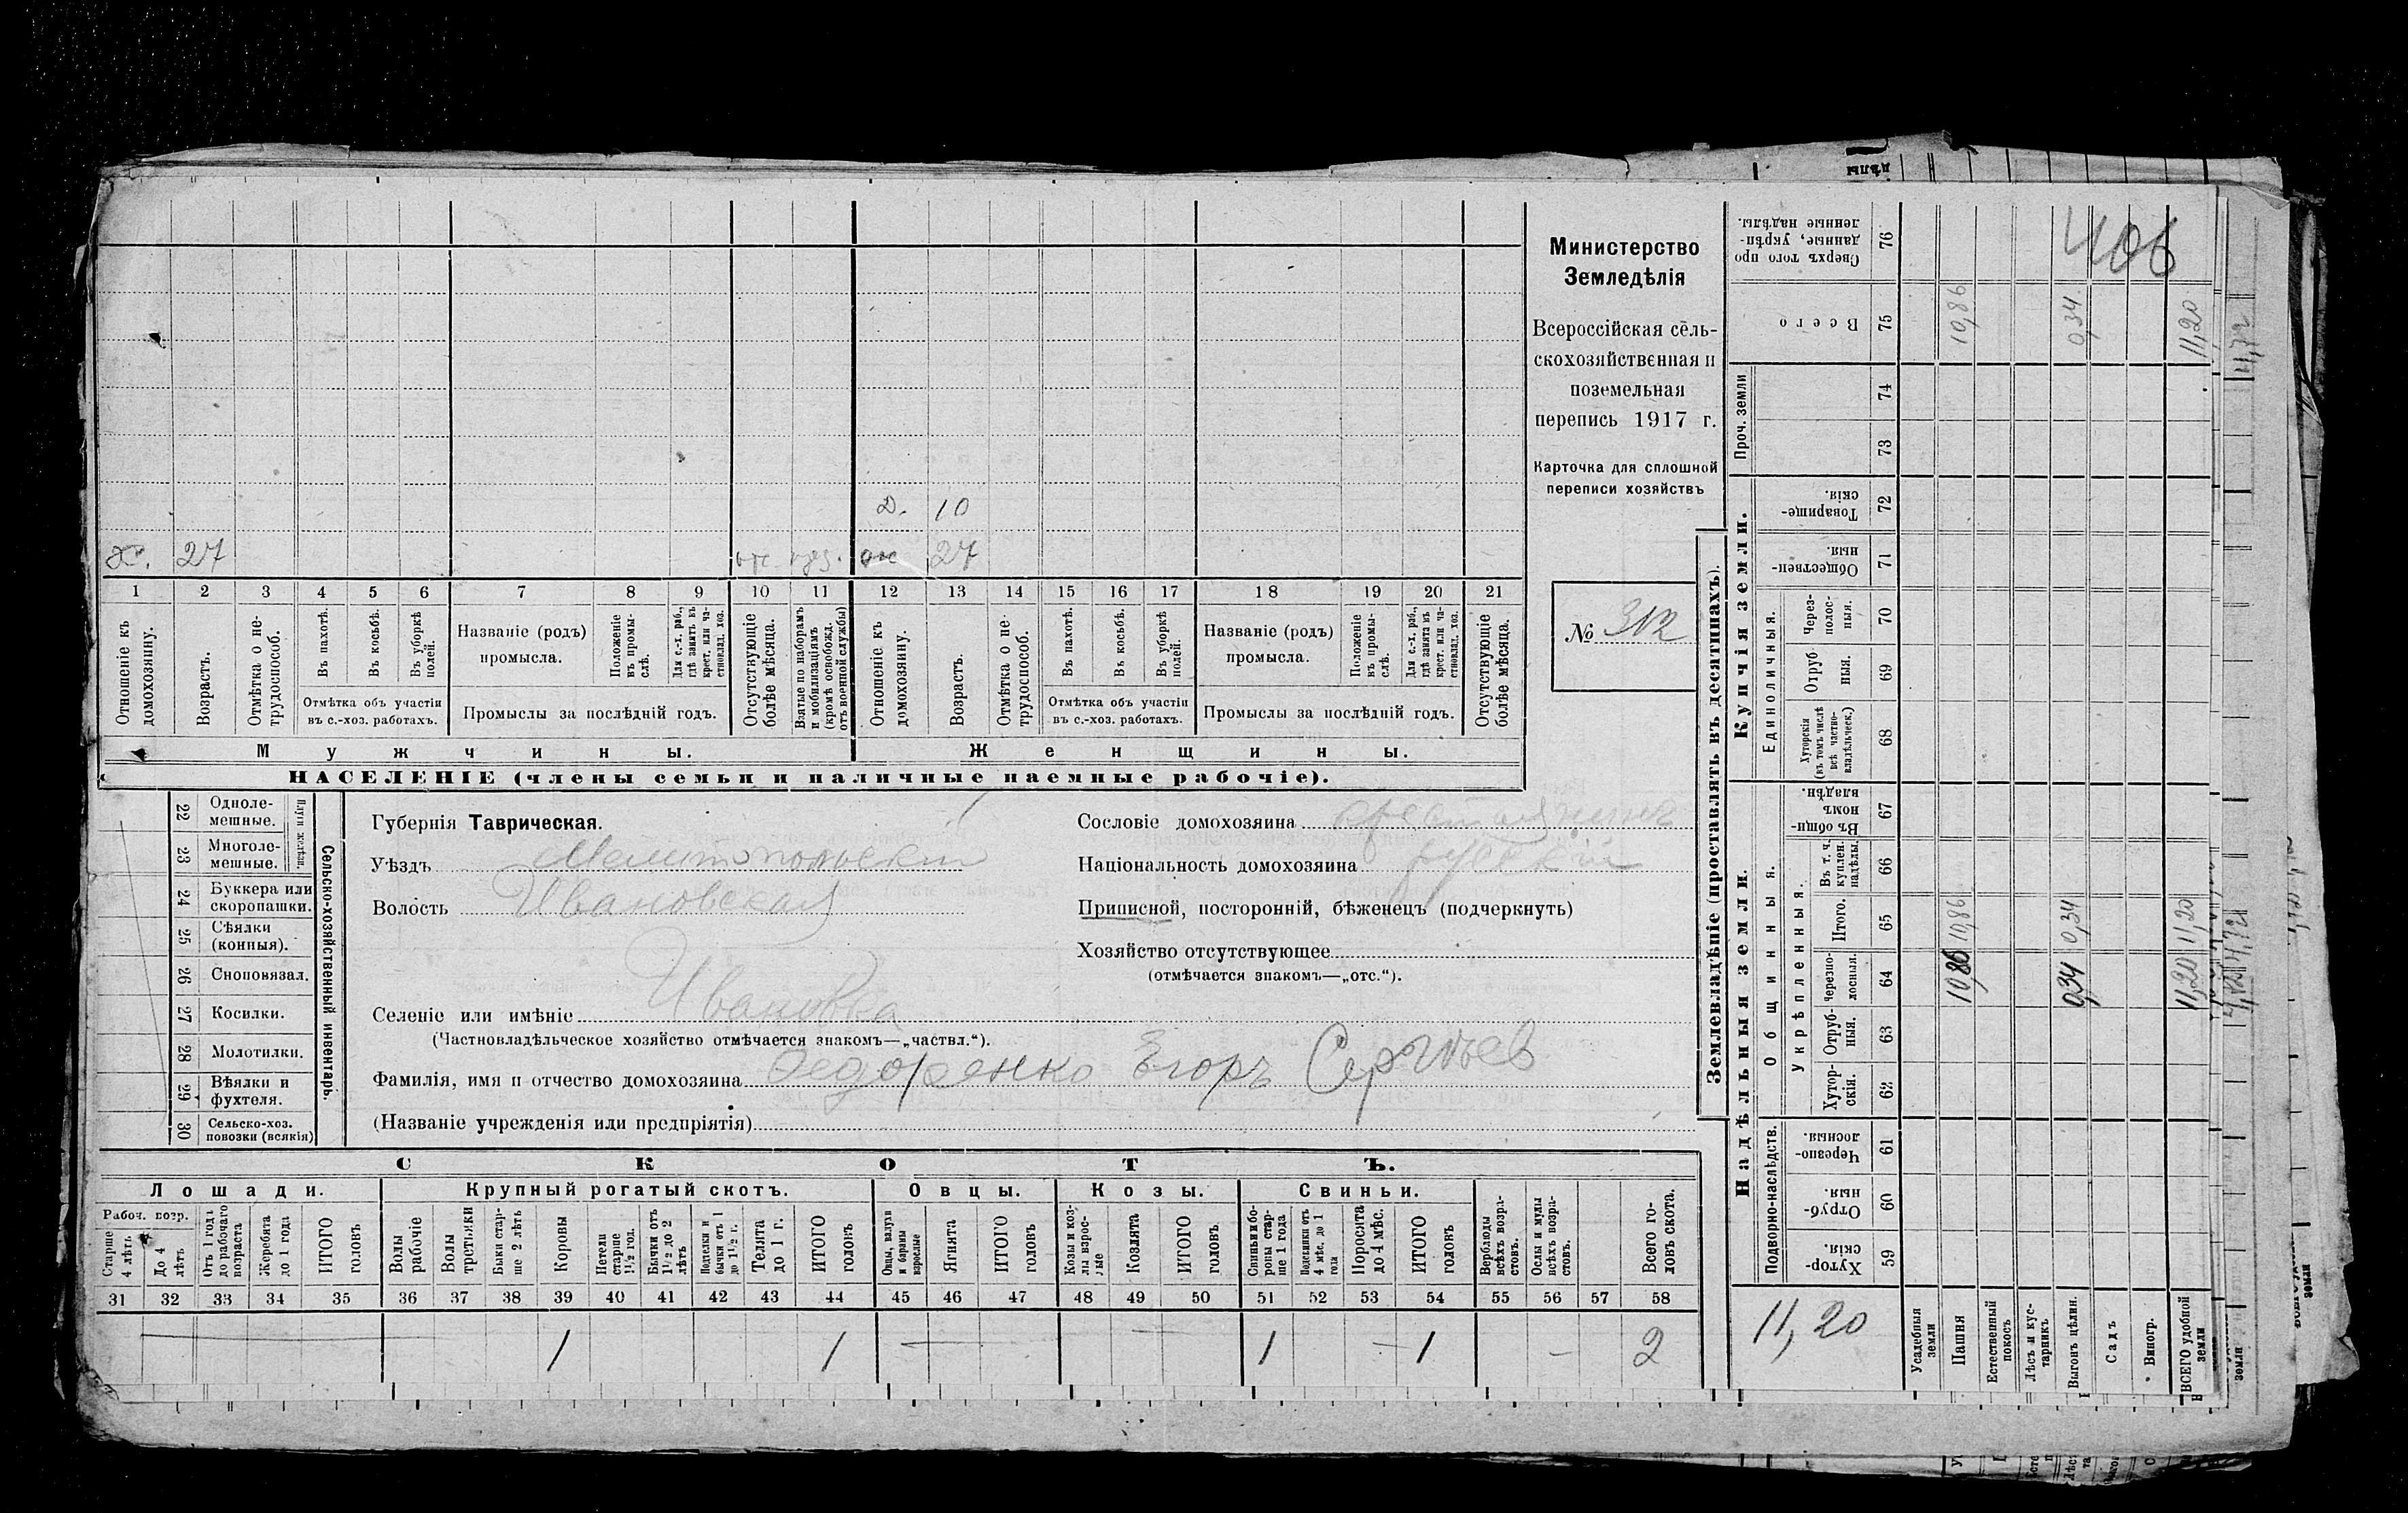 406
Министерство
Земледѣлія
Всероссійская сель-
скохозяйственная и
поземельная
перепись 1917 г.
Карточка для сплошной
переписи хозяйствъ
№ 312
Д. 10
Х. 27
27
1 2 3 4 5 6 7 8 9 10 11 12 13 14 15 16 17 18 19 20 21
Отношеніе къ домохозяину.
Возрастъ.
Отмѣтка о не-трудоспособ.
Въ пахотѣ.
Въ косьбѣ.
Въ уборкѣ полей.
Отмѣтка объ участіи
въ с.-хоз. работахъ.
Названіе (родъ)
промысла.
Положеніе въ промы-слѣ.
Для с.-х. раб., гдѣ занятъ въ крест. или ча-стновлад. хоз.
Промыслы за послѣдній годъ.
Отсутствующіе болѣе мѣсяца.
Взятые по наборамъ и мобилизаціямъ (кромѣ освобожд. отъ военной службы)
Отношеніе къ домохозяину.
Возрастъ.
Отмѣтка о не-трудоспособ.
Въ пахотѣ.
Въ косьбѣ.
Въ уборкѣ полей.
Отмѣтка объ участіи
въ с.-хоз. работахъ.
Названіе (родъ)
промысла.
Положеніе въ промы-слѣ.
Для с.-х. раб., гдѣ занята въ крест. или ча-стновлад. хоз.
Промыслы за послѣдній годъ.
Отсутствующіе болѣе мѣсяца.
Мужчины. Женщины.
НАСЕЛЕНІЕ (члены семьи и наличные наемные рабочіе).
Сельско-хозяйственный инвентарь.
Плуги желѣзн.
22 Одноле-мешные.
23 Многоле-мешные.
24 Буккера или скоропашки.
25 Сѣялки (конныя).
26 Сноповязал.
27 Косилки.
28 Молотилки.
29 Вѣялки и фухтеля.
30 Сельско-хоз. повозки (всякія)
Губернія Таврическая.
Уѣздъ Мелитопольскій
Волость Ивановская
Сословіе домохозяина крестьянинъ
Національность домохозяина русскій
Приписной, посторонній, бѣженецъ (подчеркнуть)
Хозяйство отсутствующее
(отмѣчается знакомъ—„отс.“).
Селеніе или имѣніе Ивановка
(Частновладѣльческое хозяйство отмѣчается знакомъ—„частвл.“).
Фамилія, имя и отчество домохозяина Федоренко Егоръ Сергѣев
(Названіе учрежденія или предпріятія)
СКОТЪ.
Лошади. Крупный рогатый скотъ. Овцы. Козы. Свиньи.
Рабоч. возр.
Старше 4 лѣтъ
До 4 лѣтъ
Отъ 1 года до рабочаго возраста
Жеребята до 1 года
ИТОГО головъ
Волы рабочіе
Волы третьяки
Быки стар-ше 2 лѣтъ
Коровы
Нетели старше 1½ год.
Бычки отъ 1½ до 2 лѣтъ
Подтелки и бычки отъ 1 до 1½ г.
Телята до 1 г.
ИТОГО головъ
Овцы, валухи и бараны взрослые
Ягнята
ИТОГО головъ
Козы и коз-лы взрос-лые
Козлята
ИТОГО головъ
Свиньи и бо-ровы стар-ше 1 года
Подсвинки отъ 4 мѣс. до 1 года
Поросята до 4 мѣс.
ИТОГО головъ
Верблюды всѣхъ возра-стовъ.
Ослы и мулы всѣхъ возра-стовъ.
Всего го-ловъ скота.
31 32 33 34 35 36 37 38 39 40 41 42 43 44 45 46 47 48 49 50 51 52 53 54 55 56 57 58
1 1 — — 1 — 1 — 2
Землевладѣніе (проставлять въ десятинахъ).
Купчія земли.
Сверхъ того про-данные, укрѣп-ленные надѣлы. 76
Всего 75 10,86 0,34 11,20
Проч. земли 74 73
Товарище-скія. 72
Обществен-ныя. 71
Единоличныя.
Через-полос-ныя. 70
Отруб-ныя. 69
Хуторскія (въ томъ числѣ всѣ частно-владѣльческ.) 68
Надѣльныя земли.
Общинныя.
Въ общин-номъ владѣн. 67
Укрѣпленныя.
Въ т. ч. куплен. надѣлы. 66
Итого. 65 10,86 0,34 11,20
Черезпо-лосныя. 64 10,86 0,34 11,20
Отруб-ныя. 63
Хутор-скія. 62
Подворно-наслѣдств.
Черезпо-лосныя. 61
Отруб-ныя. 60
Хутор-скія. 59
11,20
Усадебныя земли
Пашня
Естественный покосъ
Лѣсъ и кус-тарникъ
Выгонъ цѣлин.
Садъ
Виногр.
ВСЕГО удобной земли